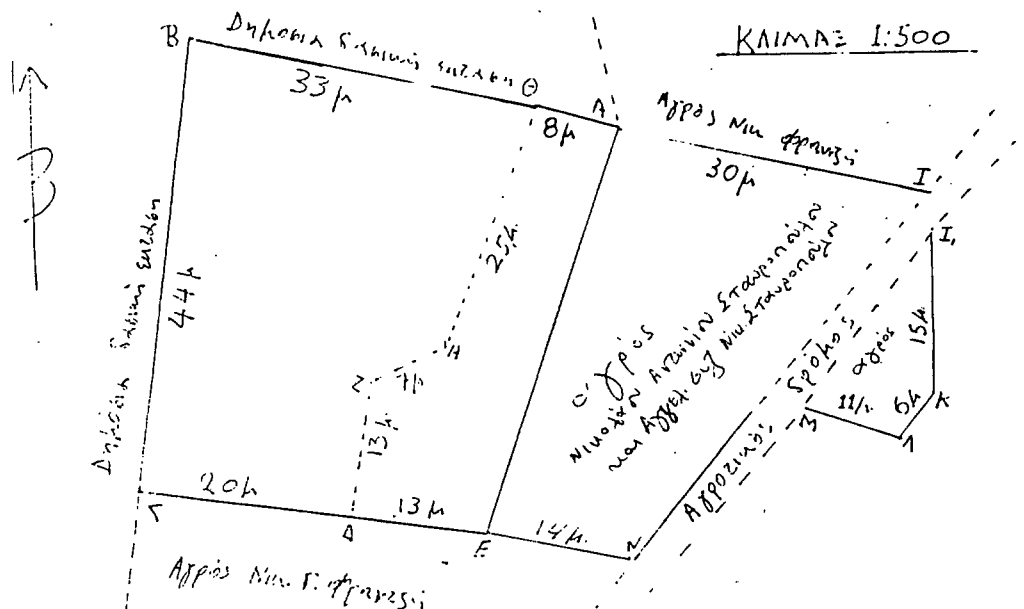 ΚΛΙΜΑΞ 1:500
Β
Δημόσια δασική έκταση
Θ
33 μ
8 μ
Α
Αγρός Νικ. Φραντζή
30 μ
Ι
Ι,
Β
Δημόσια δασική έκταση
44 μ
25 μ.
Η
Ζ
7 μ
13 μ
αγρός
Νικολάου Αντωνίου Σταυροπούλου
και Αγγελ. συζ Νικ. Σταυροπούλου
Αγροτικός δρόμος
αγρός
15 μ.
11 μ.
6 μ
Κ
Λ
Γ
20 μ
Δ
13 μ
Ε
14 μ.
Ν
Αγρός Νικ. Γ. Φραντζή